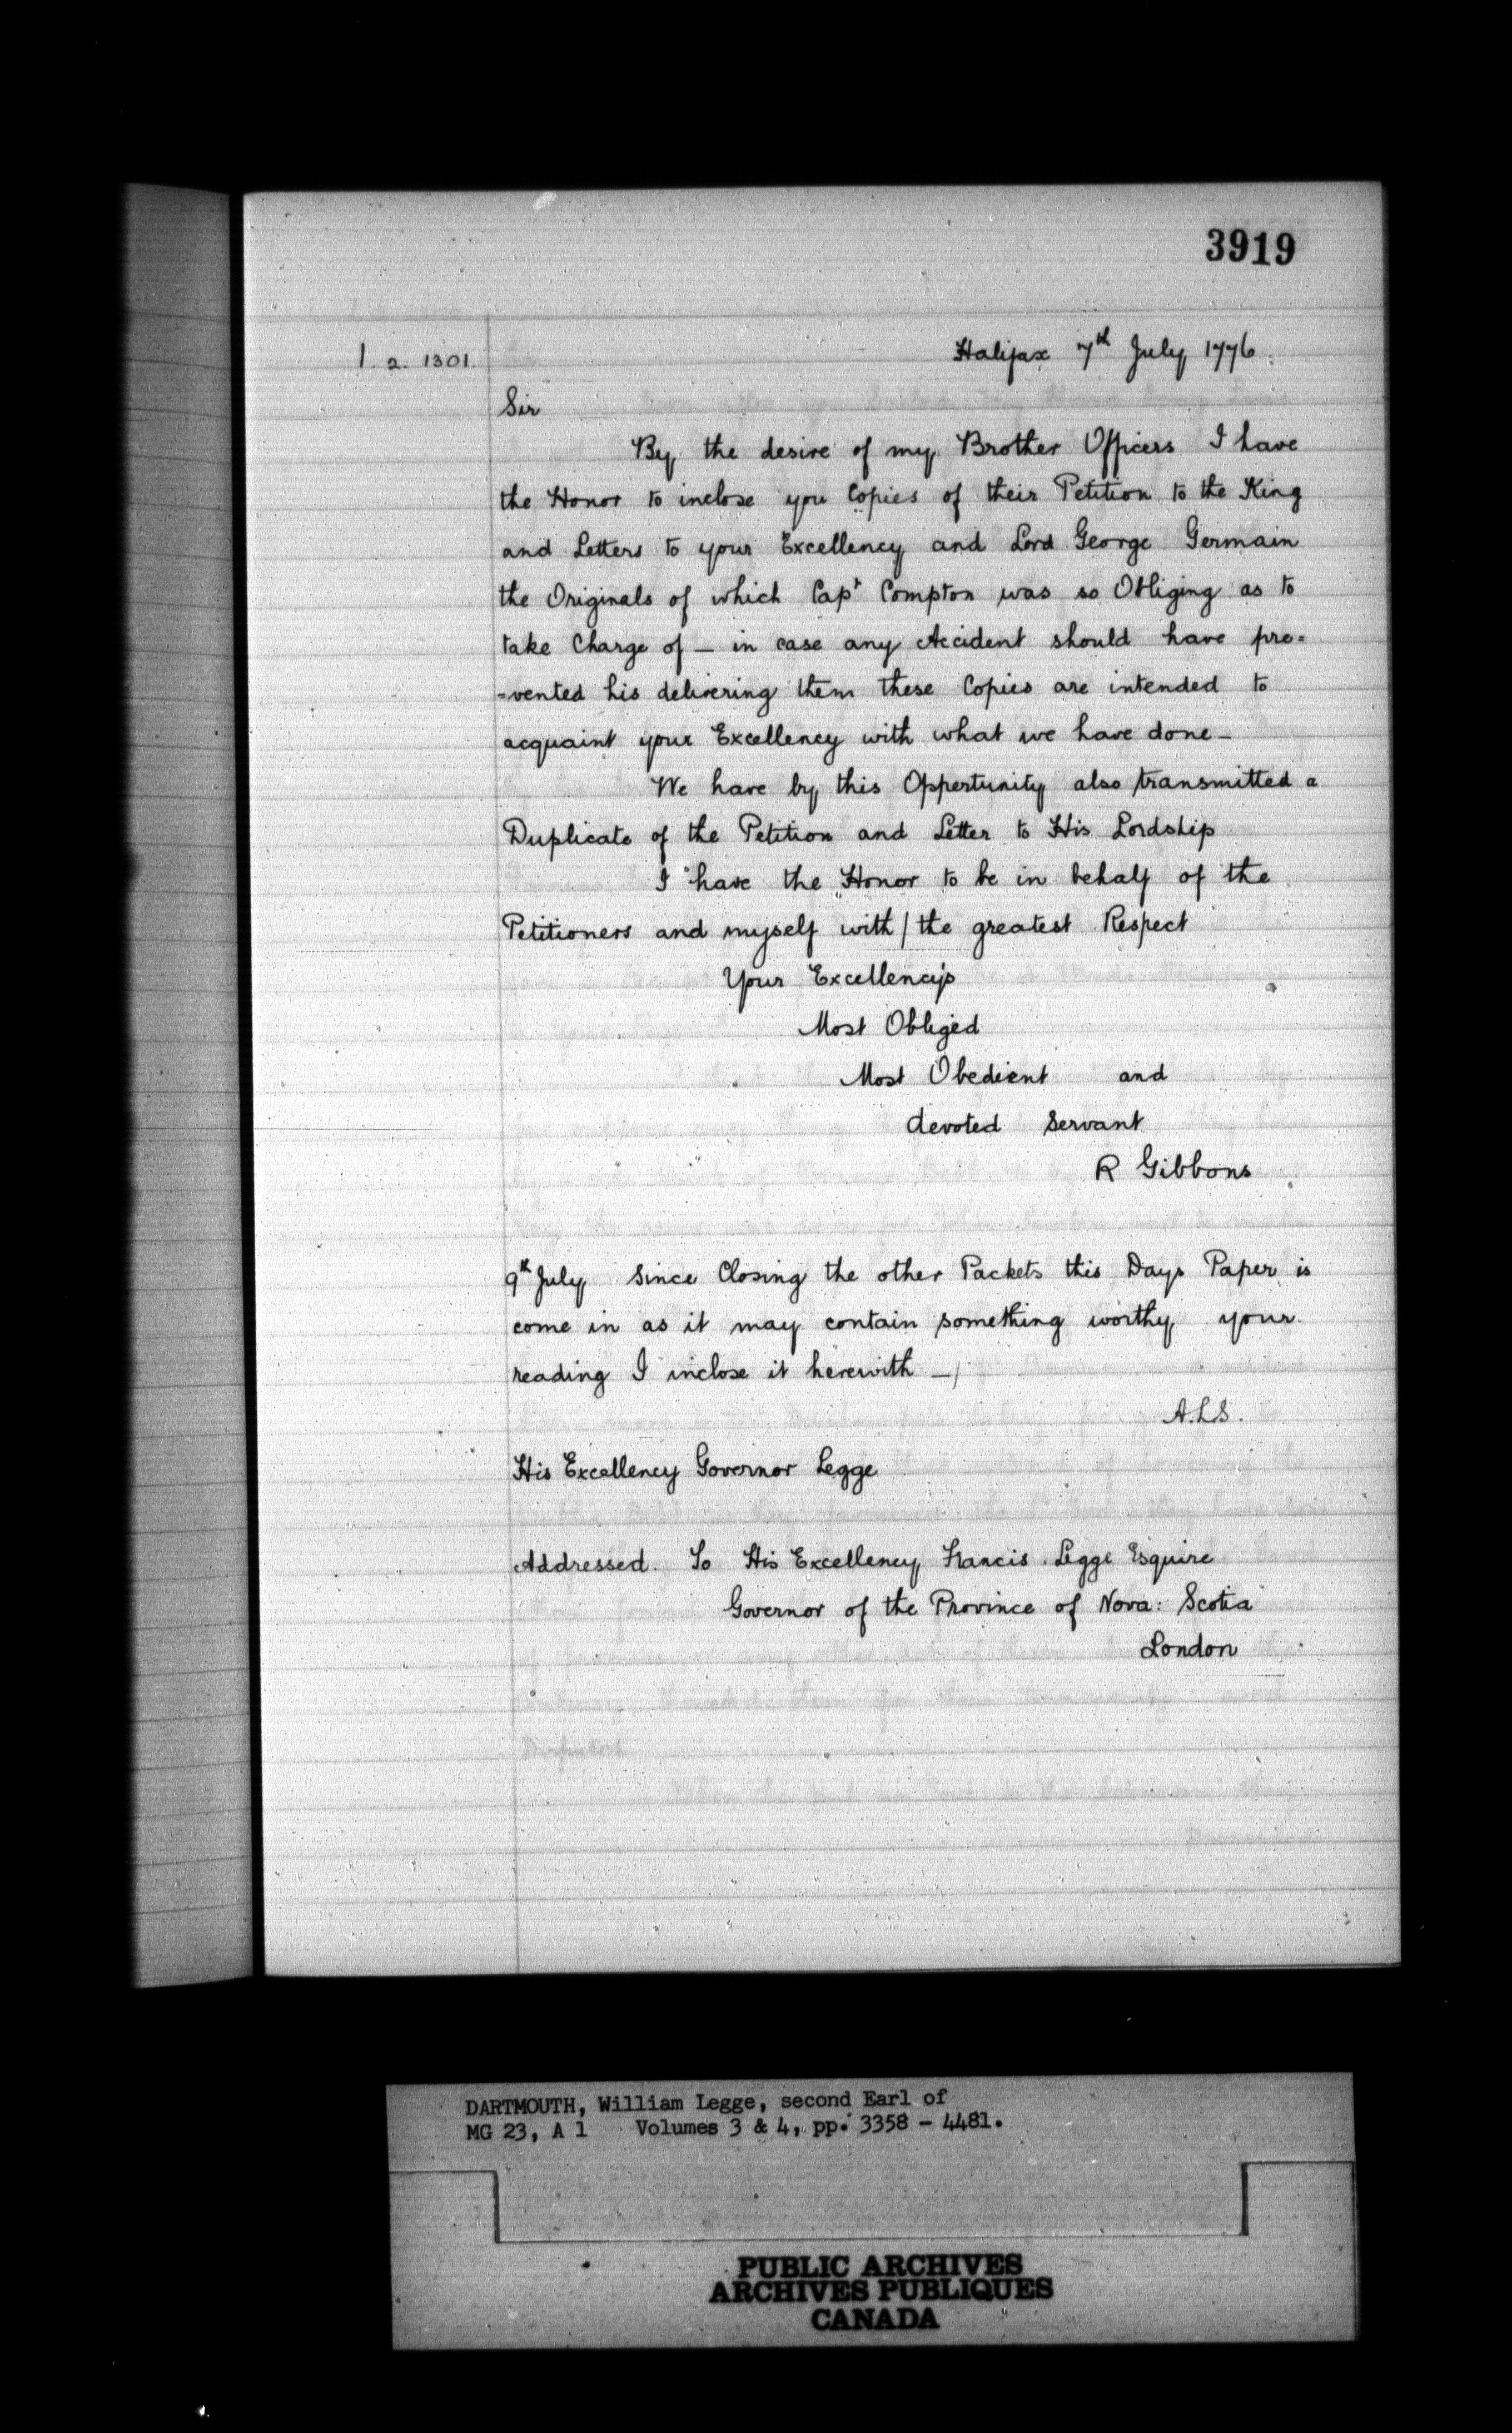 3919
1. 2. 1301.
Halifax 7th July 1776.
Sir
By the desire of my Brother Officers I have
the Honor to inclose you Copies of their Petition to the King
and Letters to your Excellency and Lord George Germain
the Originals of which Capt Compton was so Obliging as to
take Charge of — in case any Accident should have pre=
=vented his delivering them these Copies are intended to
acquaint your Excellency with what we have done —
We have by this Oppertunity also transmitted a
Duplicate of the Petition and Letter to His Lordship
I have the Honor to be in behalf of the
Petitioners and myself with / the greatest Respect
Your Excellency's
Most Obliged
Most Obedient and
devoted Servant
R Gibbons
9th July Since Closing the other Packets this Days Paper is
come in as it may contain something worthy your
reading I inclose it herewith —/
A.L.S.
His Excellency Governor Legge
Addressed. To His Excellency Francis Legge Esquire
Governor of the Province of Nova: Scotia
London
DARTMOUTH, William Legge, second Earl of
MG 23, A 1 Volumes 3 & 4, pp. 3358 - 4481.
PUBLIC ARCHIVES
ARCHIVES PUBLIQUES
CANADA